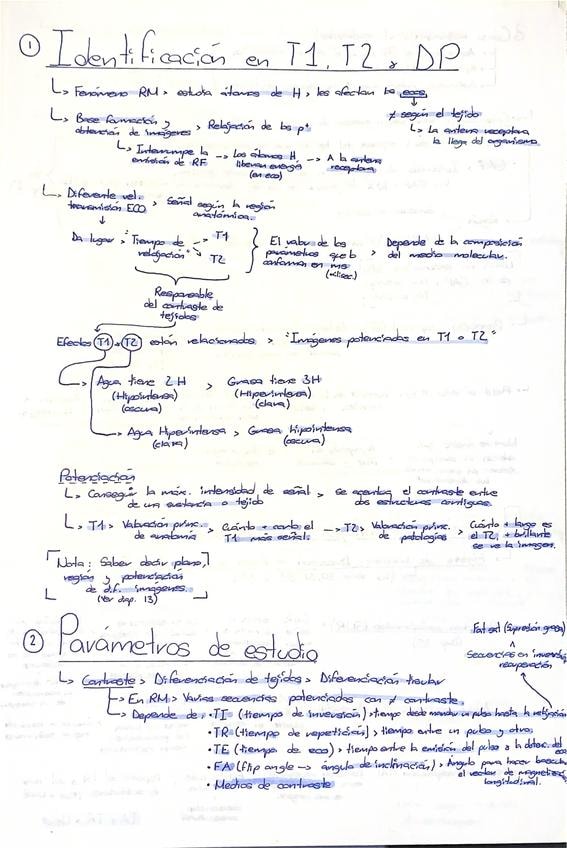 ① Identificación en T1, T2 y DP
↳ Fenómeno RM > estudia átomos de H > les afectan los ecos
≠ según el tejido
↳ La antena receptora
la llega del organismo
↳ Base formación y
obtención de imágenes > Relajación de los p⁺
↳ Interrumpe la → Los átomos H → A la antena
emisión de RF liberan energía receptora
(en eco)
↳ Diferente vel. > Señal según la región
transmisión ECO anatómica.
Da lugar > "Tiempo de → T1
relajación" → T2
El valor de los
parámetros que lo
conforman en ms
> Depende de la composición
del medio molecular.
Responsable
del contraste de
tejidos
Efectos T1 y T2 están relacionados > "Imágenes potenciadas en T1 o T2"
→ Agua tiene 2H > Grasa tiene 3H
(Hipointensa) (Hiperintensa)
(oscura) (clara)
→ Agua Hiperintensa > Grasa hipointensa
(clara) (oscura)
Potenciación
↳ Conseguir la máx. intensidad de señal > se acentúa el contraste entre
de una sustancia o tejido dos estructuras contiguas.
↳ T1 > Valoración princ. > Cuánto + corto el → T2 > Valoración princ. > Cuánto + largo es
de anatomía T1 más señal. de patologías el T2, + brillante
se ve la imagen.
Nota: Saber decir plano,
región y potenciación
de dif. imágenes.
(Ver diap. 13)
② Parámetros de estudio
Fat sat (Supresión grasa)
Secuencias en inversión
recuperación
↳ Contraste > Diferenciación de tejidos > Diferenciación tisular
↳ En RM > Varias secuencias potenciadas con ≠ contraste.
↳ Depende de: • TI (tiempo de inversión) > tiempo desde mandar un pulso hasta la relajación
• TR (tiempo de repetición) > tiempo entre un pulso y otro.
• TE (tiempo de eco) > tiempo entre la emisión del pulso a la detec. del eco
• FA (Flip angle → ángulo de inclinación) > Ángulo para hacer bascular
el vector de magnetiz.
longitudinal.
• Medios de contraste